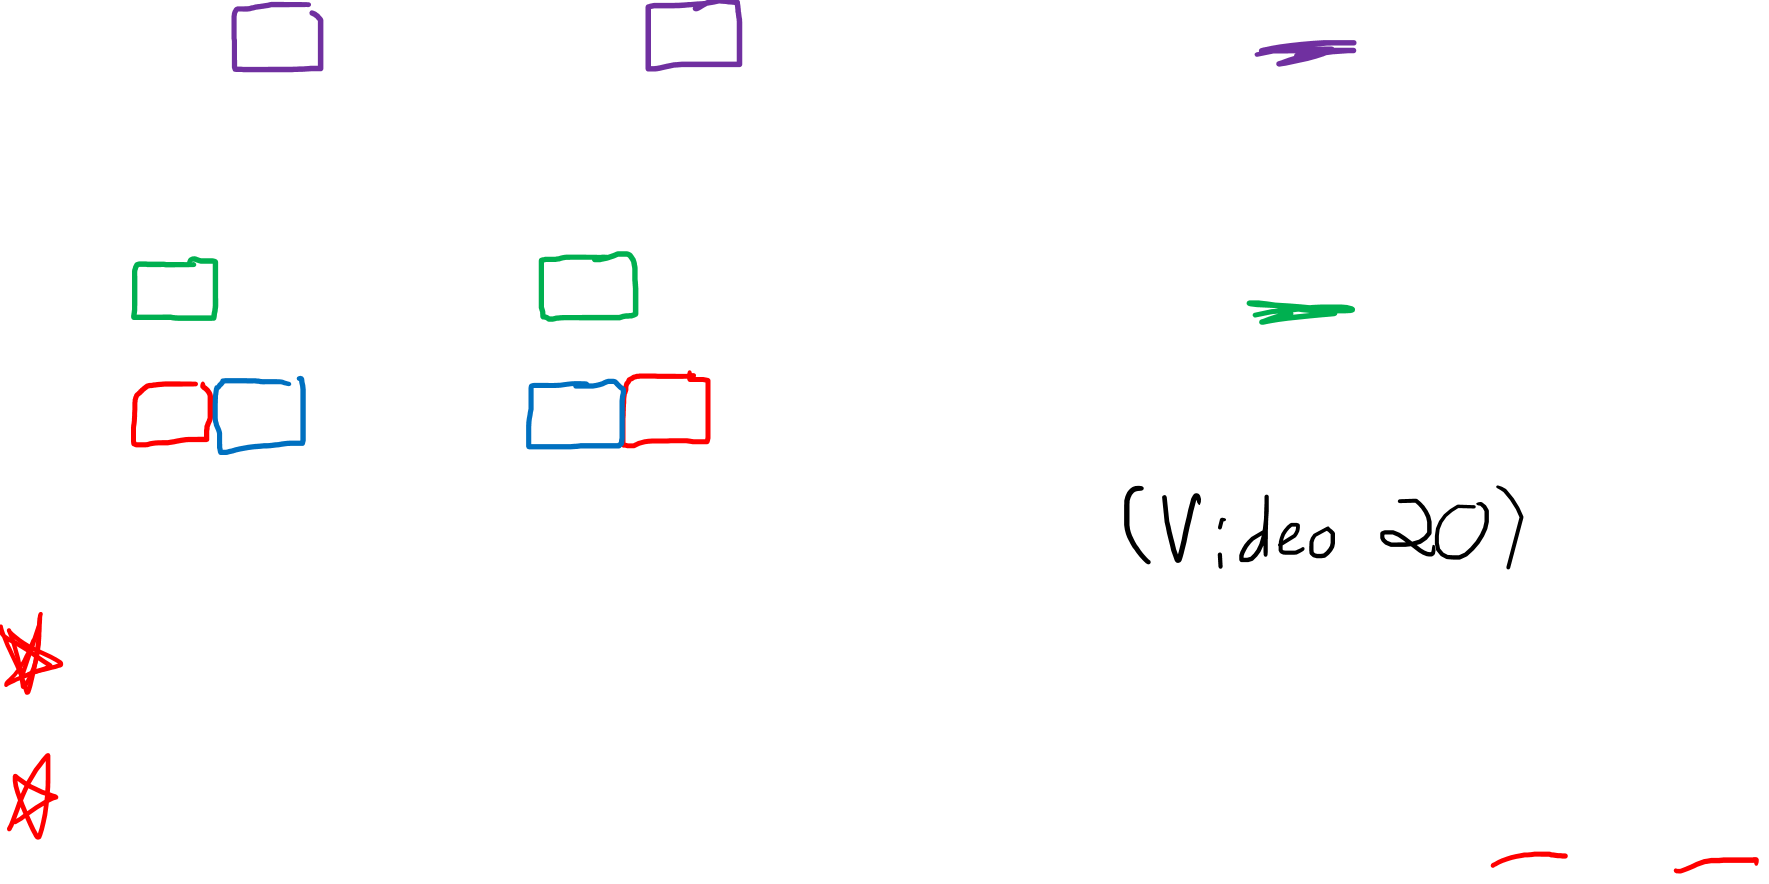 (Video 20)